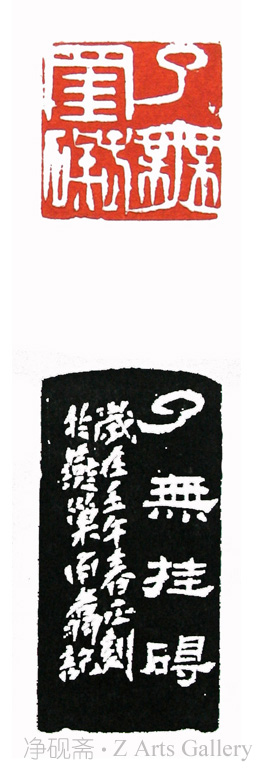 了無
罣碍
了無挂碍
歲在壬午春正刻
於燕巢南窗記
净砚斋·Z Arts Gallery